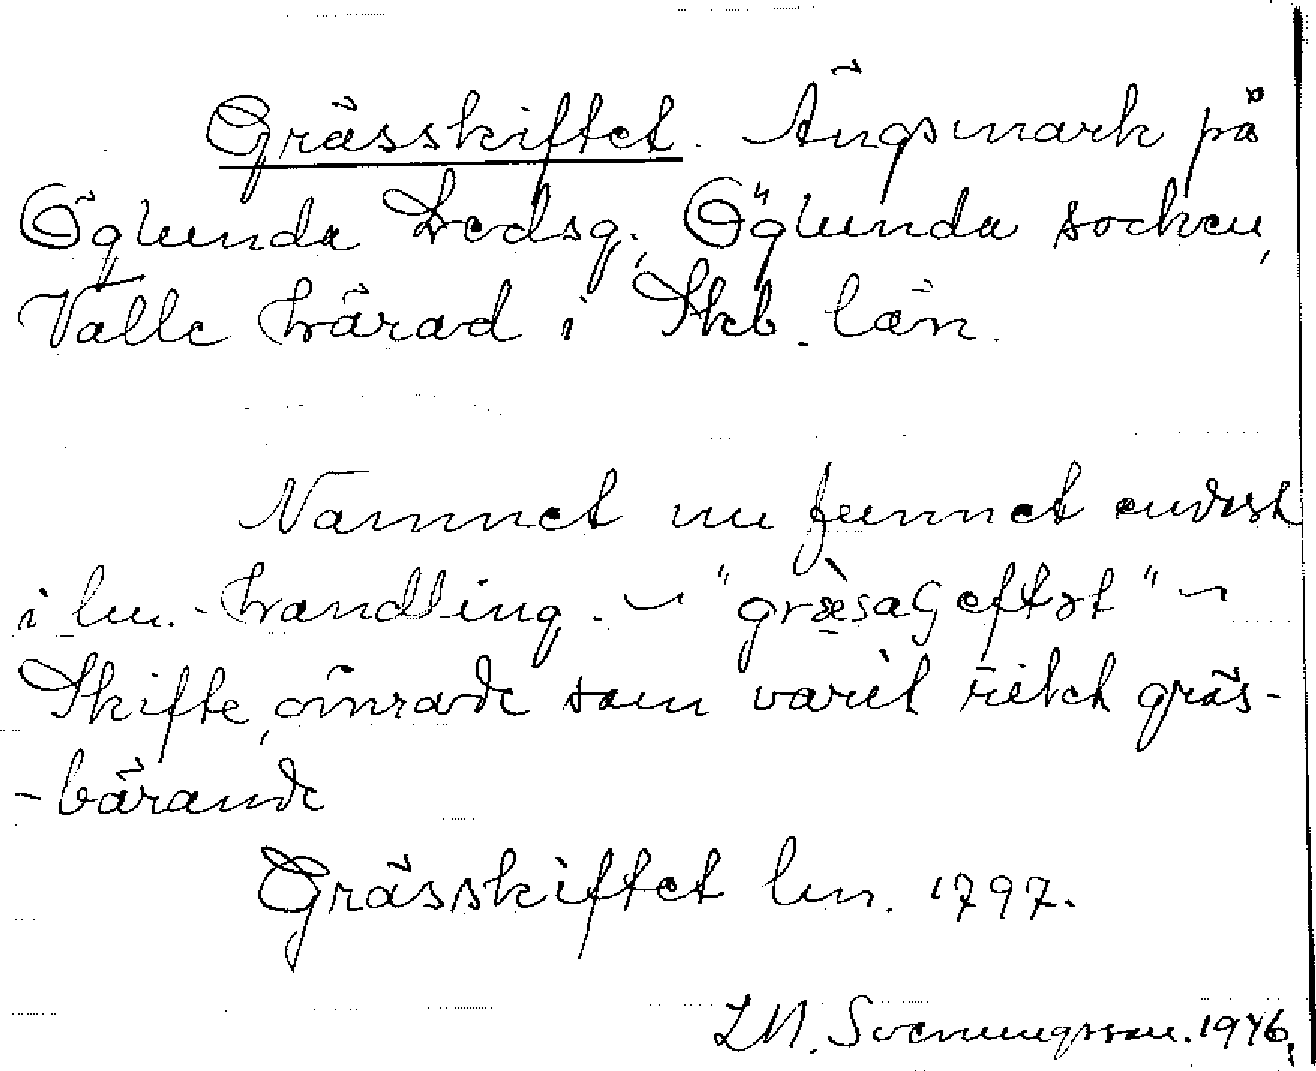 Grässkiftet. Ängsmark på
Öglunda Ledsg., Öglunda socken,
Valle härad i Skb. län.
Namnet nu funnet endast
i lm.-handling. ~ ~
Skifte, område som varit rikt gräs-
-bärande
Grässkiftet lm. 1797.
Svenungsson. 1946.